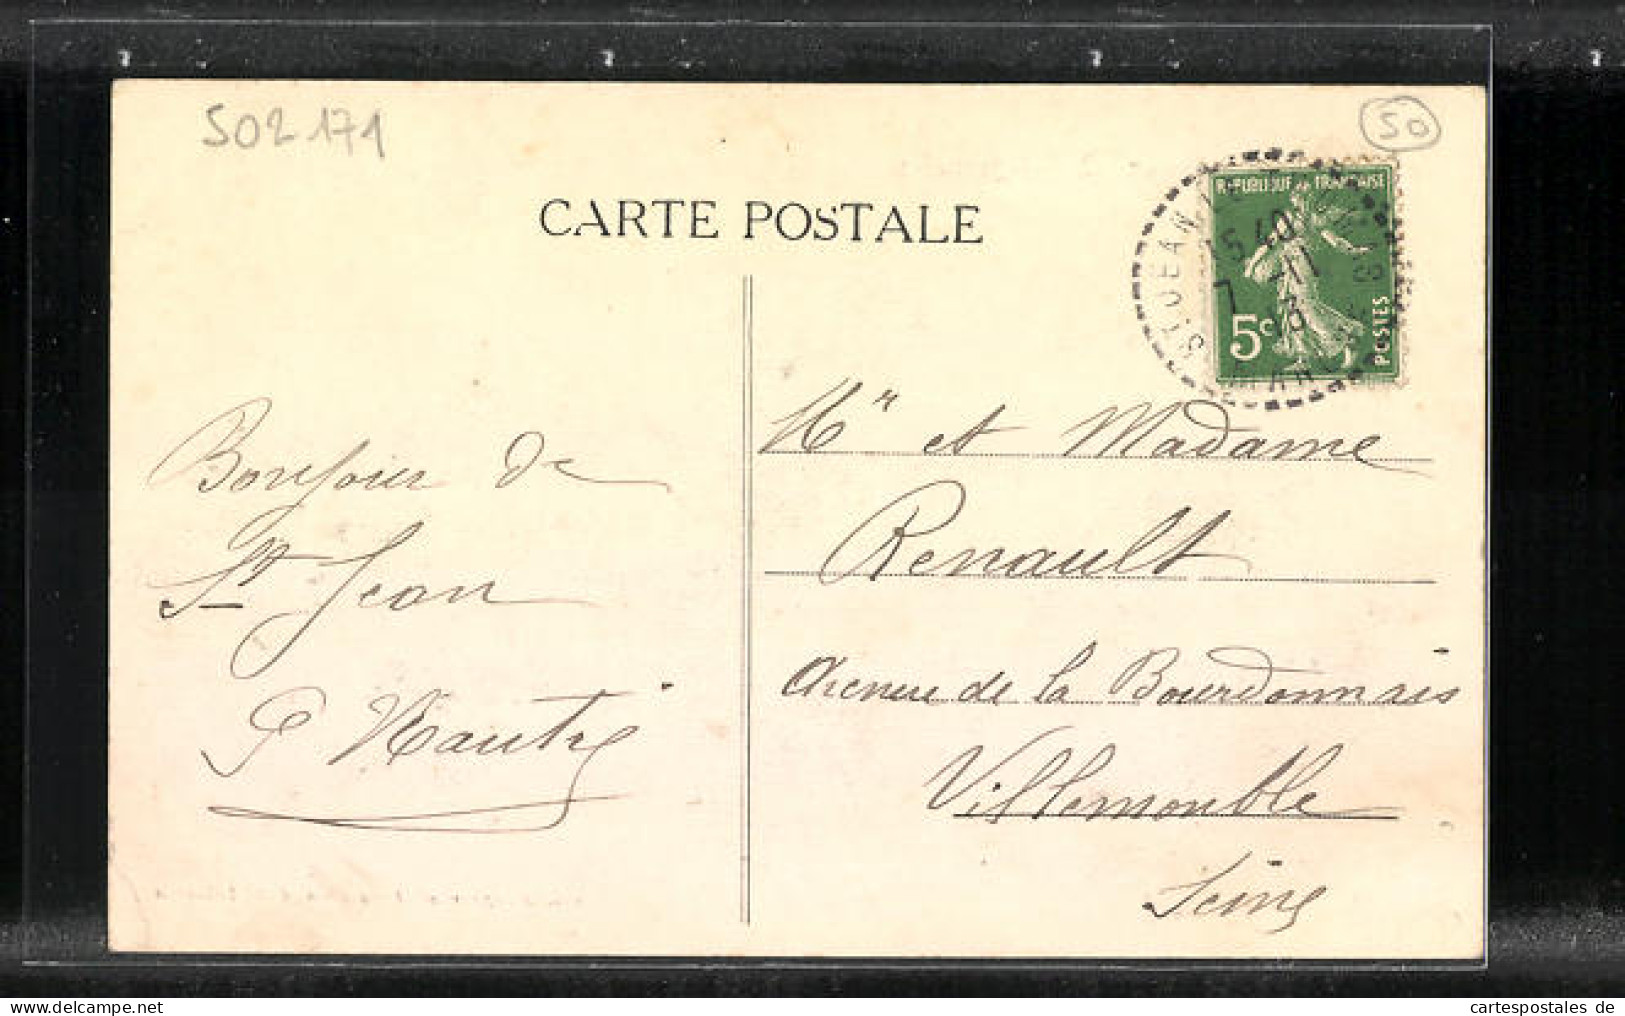 502171
50
CARTE POSTALE
REPUBLIQUE FRANÇAISE
5c
POSTES
15 40
7 -11
13
Bonjour de
St Jean
Mr et Madame
Renault
Avenue de la Bourdonnais
Villemomble
Seine
cartespostales de